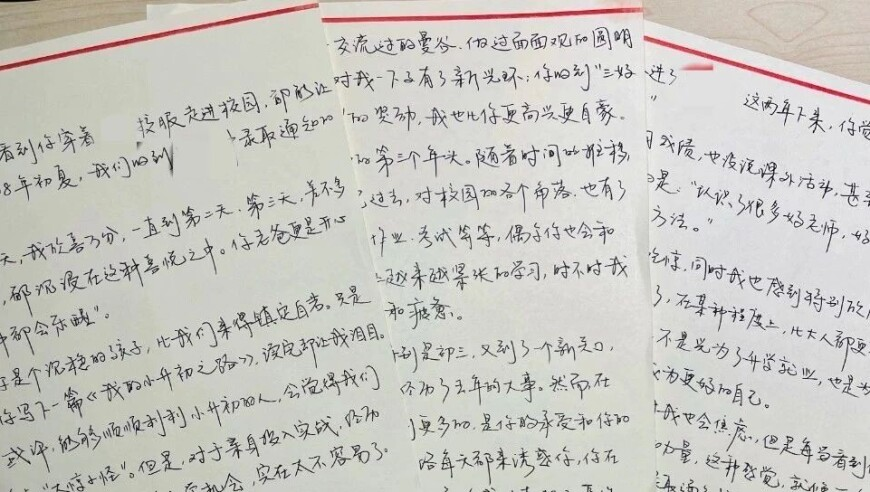 看到你穿着 校服走进校园，都能让
08年初夏，我们收到 录取通知
天，我欣喜万分，一直到第二天、第三天，差不多
，都沉浸在这种喜悦之中。你老爸更是开心
中都会乐醒”。
子是个沉稳的孩子，比我们来得镇定自若。只是
你写下一篇《我的小升初之路》，读完却让我泪目。
或许，能够顺顺利利小升初的人，会觉得我们
“大惊小怪”。但是，对于亲身投入实战，经历
机会，实在太不容易了。
交流过的曼谷、做过面面观的圆明
对我一下子有了新光环；你收到“三好
的奖励，我也比你更高兴更自豪。
的第三个年头。随着时间的推移，
过去，对校园的各个角落也有了
作业、考试等等，偶尔你也会和
越来越紧张的学习，时不时我
和疲惫。
到是初三，又到了一个新关口，
为了去年的大事。然而在
更多的，是你的承受和你的
路每天都来诱惑你，你在
进了
”
这两年下来，你觉
成绩，也没说课外活动，甚至
是：“认识了很多好老师，好
方法。”
吃惊，同时我也感到特别欣
了，在某种程度上，比大人都更
不是光为了升学就业，也是为
成为更好的自己。
我也会焦虑，但是每当看到你
力量，这种感觉，就像